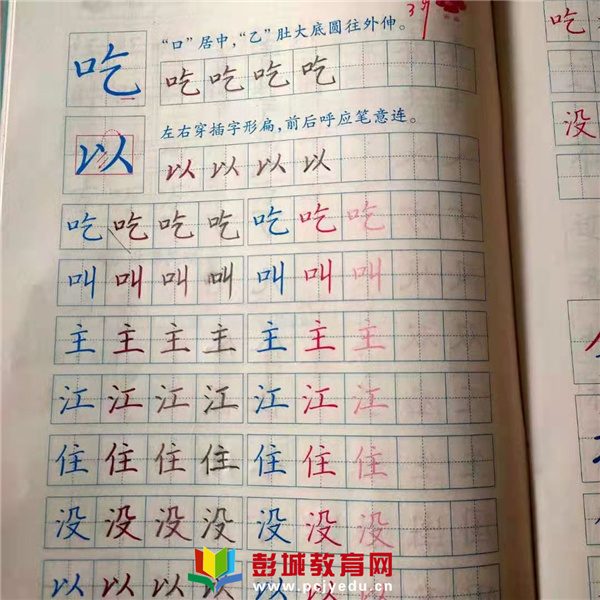 吃
“口”居中，“乙”肚大底圆往外伸。
吃 吃 吃 吃
以
左右穿插字形扁，前后呼应笔意连。
以 以 以 以
吃 吃 吃 吃 吃 吃 吃
叫 叫 叫 叫 叫 叫 叫
主 主 主 主 主 主 主
江 江 江 江 江 江 江
住 住 住 住 住 住 住
没 没 没 没 没 没 没
以 以 以 以 以 以 以
吃
没
彭城教育网
www.pcjyedu.cn